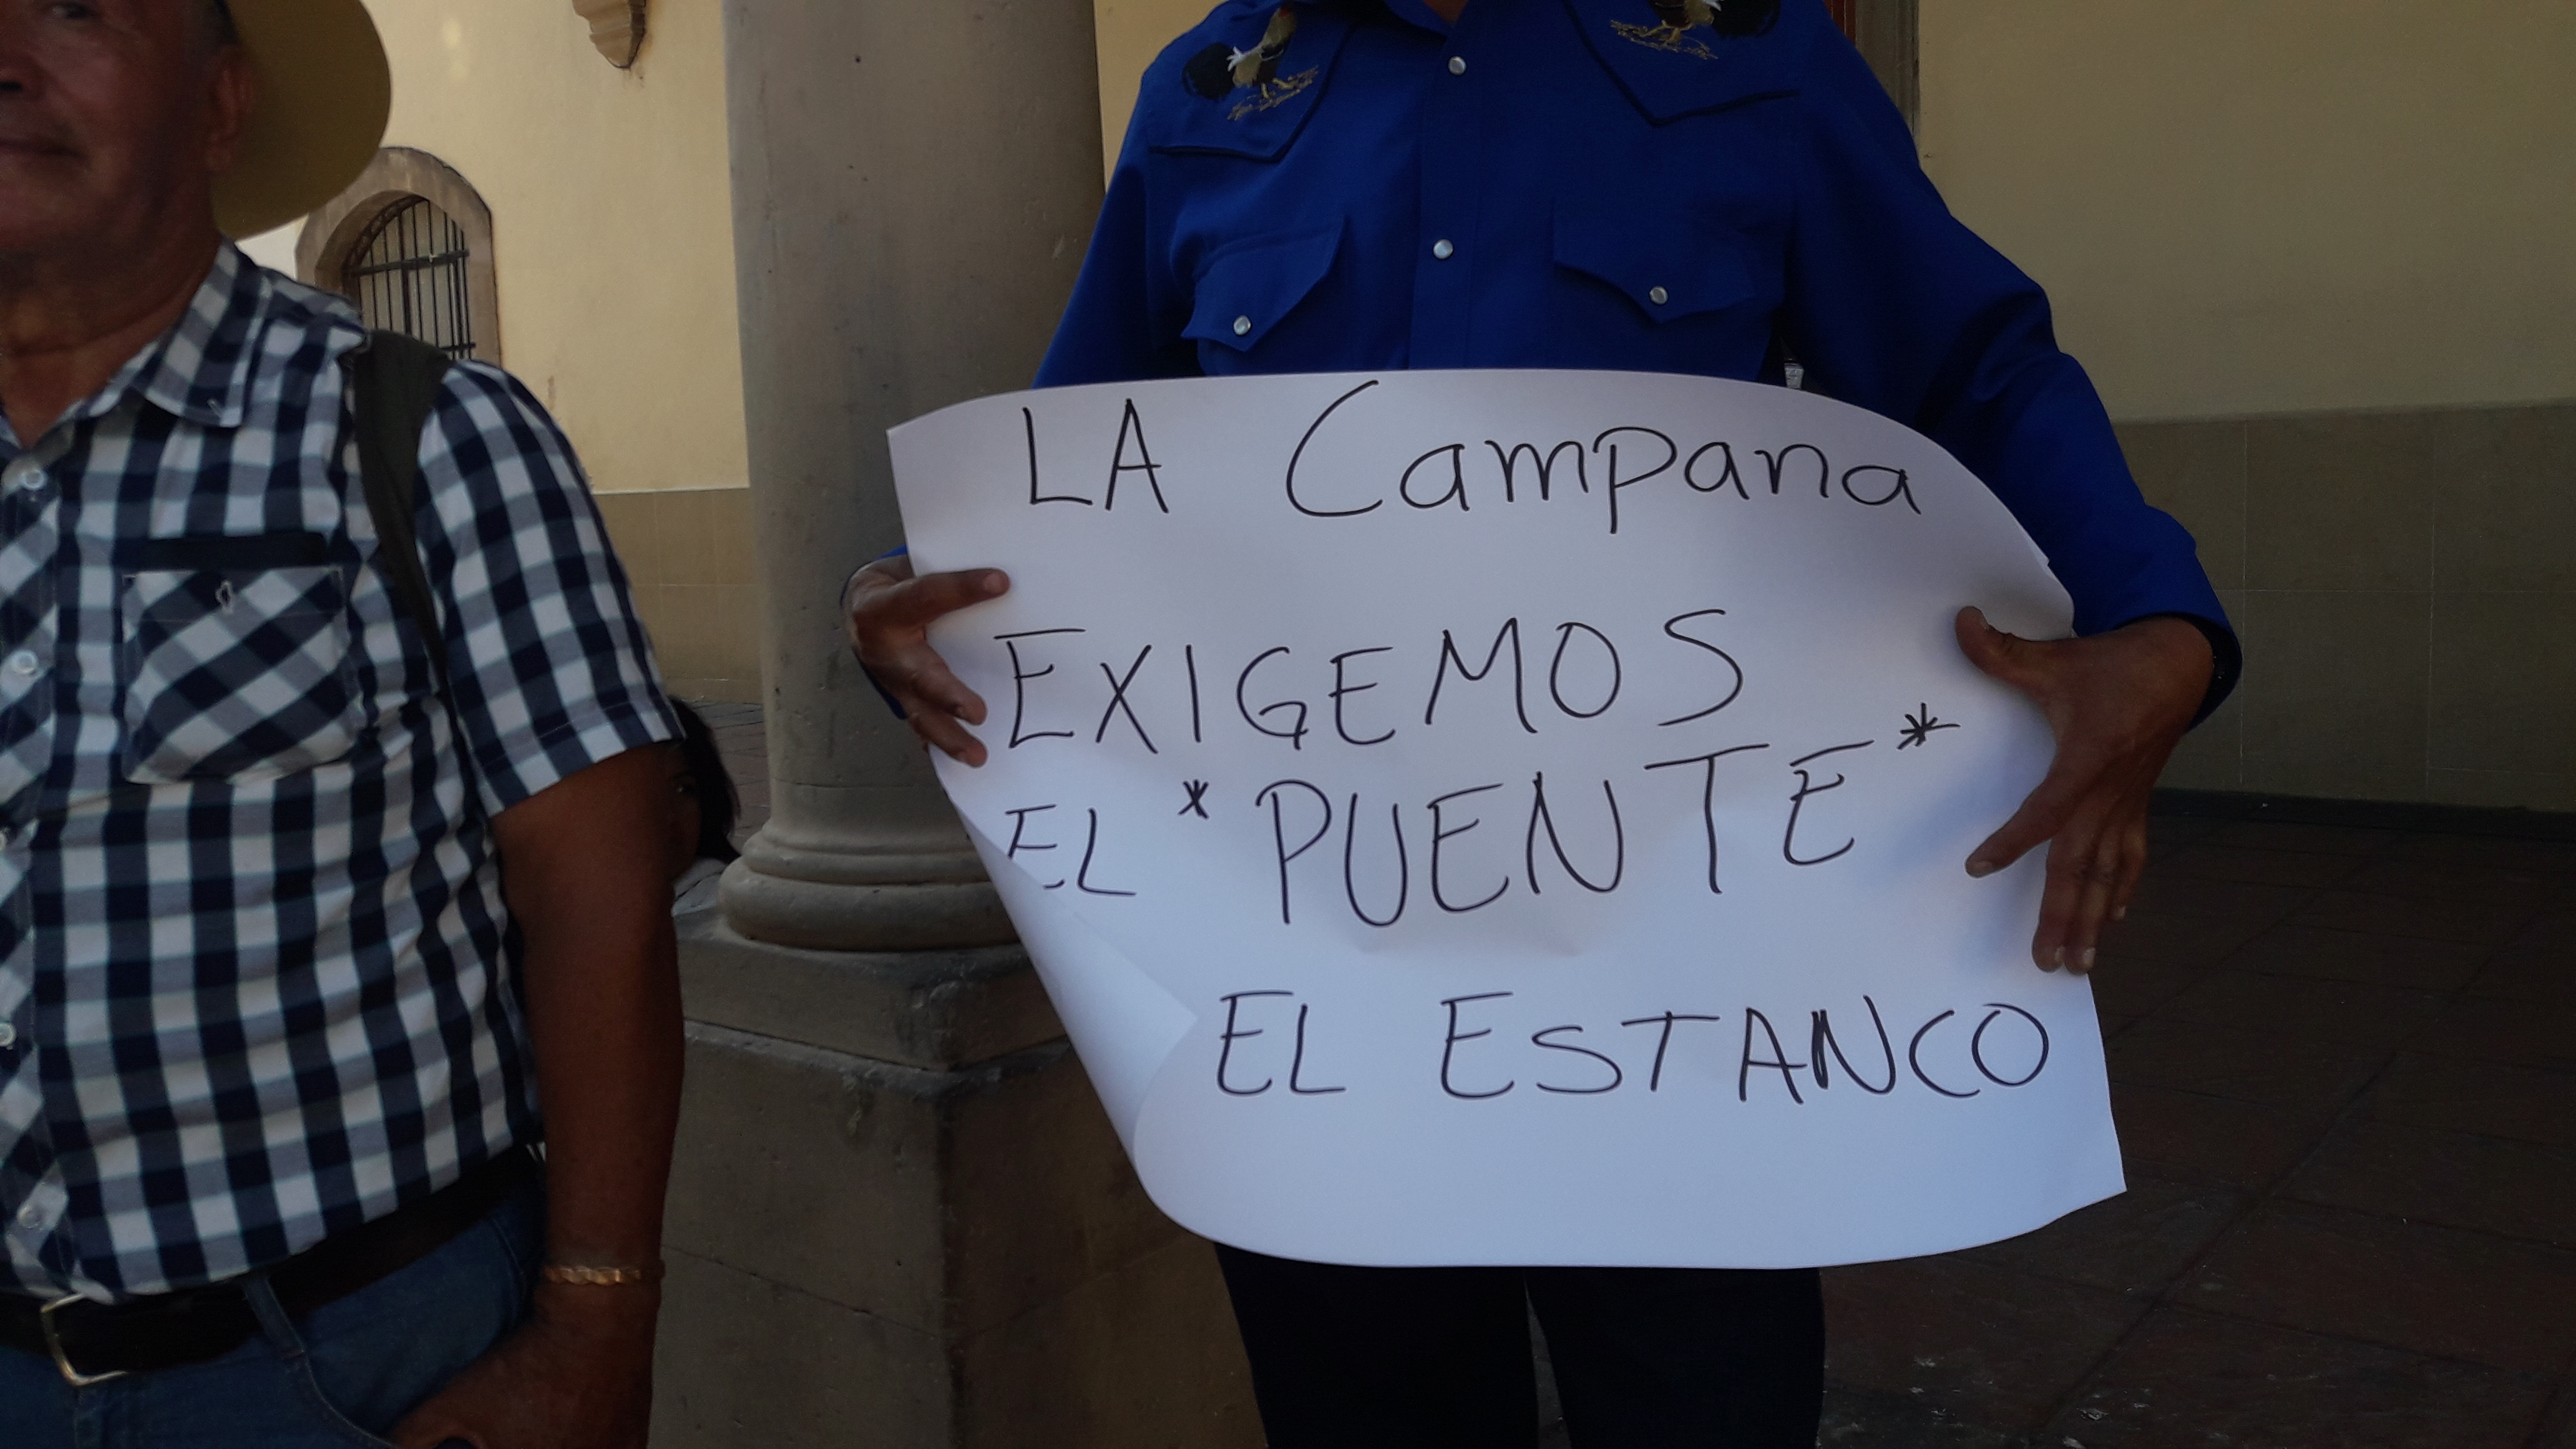 LA Campana
EXIGEMOS
EL *PUENTE*
EL ESTANCO